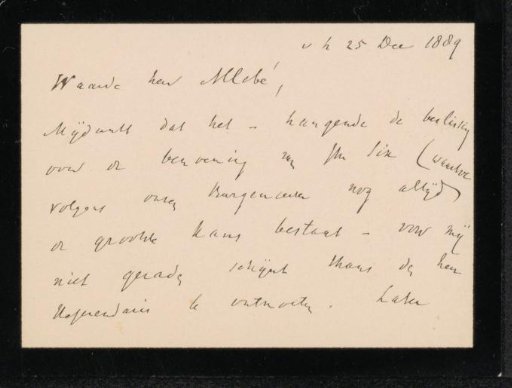 25 Dec 1889
Waarde heer Allebé,
Mij dunkt dat het – hangende de beslissing
over de benoeming van Jhr Six (waarvoor
volgens onzen Burgemeester nog altijd)
de grootste kans bestaat – voor mij
niet geraden schijnt thans den heer
Referendaris te ontmoeten. Later